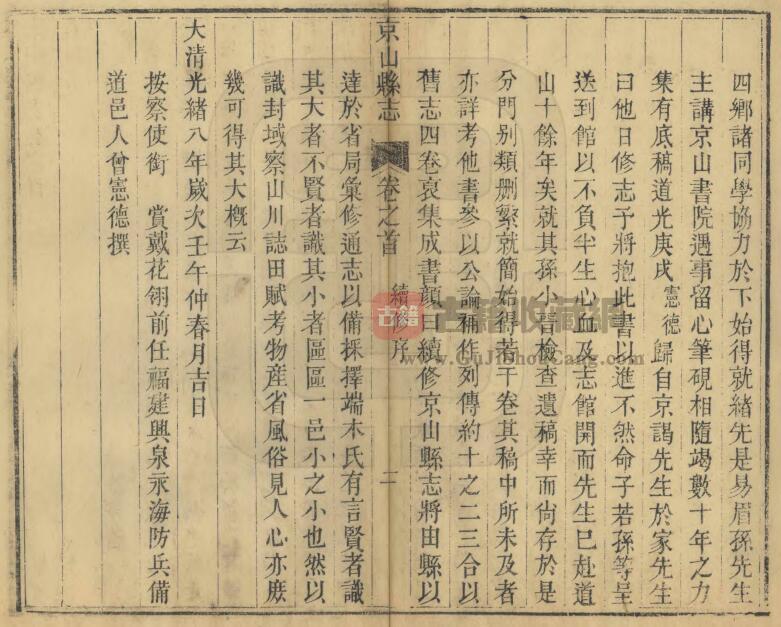 四鄉諸同學協力於下始得就緒先是易眉孫先生
主講京山書院遇事留心筆硯相隨竭數十年之力
集有底稿道光庚戌憲德歸自京謁先生於家先生
曰他日修志予將抱此書以進不然命子若孫等呈
送到館以不負半生心血及志館開而先生已赴道
山十餘年矣就其孫小書檢查遺稿幸而尙存於是
分門別類刪繁就簡始得若干卷其稿中所未及者
亦詳考他書參以公論稱作列傳約十之二三合以
舊志四卷裒集成書顏曰續修京山縣志將由縣以
京山縣志 卷之首 續修序 二
達於省局彙修通志以備採擇端木氏有言賢者識
其大者不賢者識其小者區區一邑小之小也然以
識封域察山川誌田賦考物產省風俗見人心亦庶
幾可得其大概云
大清光緒八年歲次壬午仲春月吉日
按察使銜 賞戴花翎前任福建興泉永海防兵備
道邑人曾憲德撰
古籍 古籍收藏網
www.GuJiShouCang.com